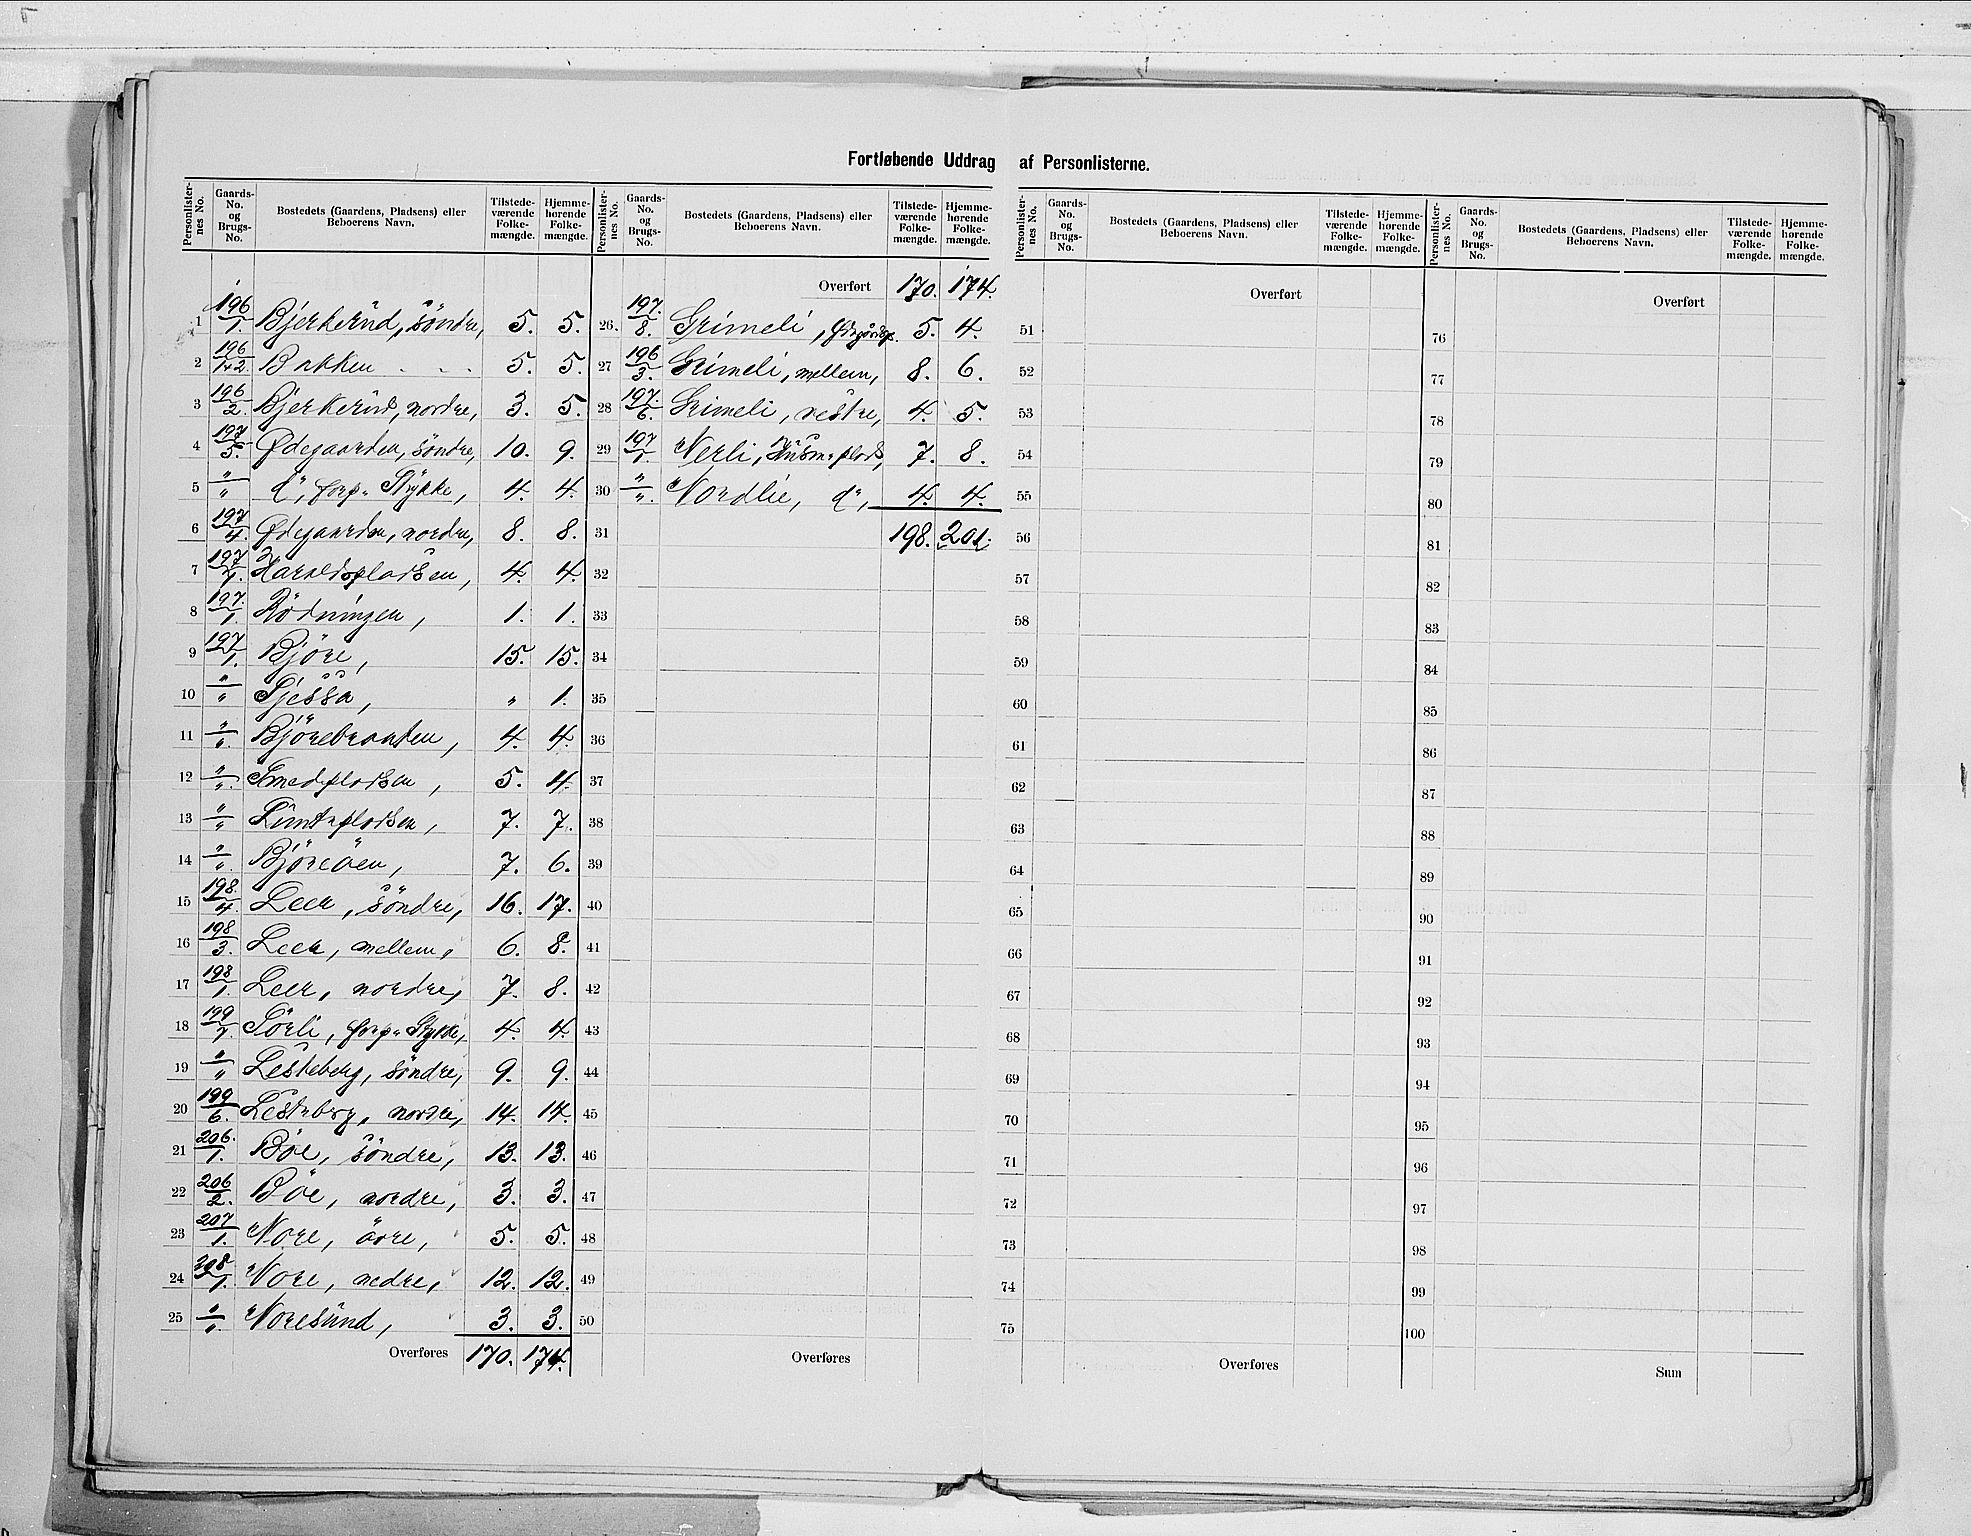 Fortløbende Uddrag af Personlisterne.
Personlisternes No. Gaards-No. og Brugs-No. Bostedets (Gaardens, Pladsens) eller Beboerens Navn. Tilstedeværende Folkemængde. Hjemmehørende Folkemængde. Personlisternes No. Gaards-No. og Brugs-No. Bostedets (Gaardens, Pladsens) eller Beboerens Navn. Tilstedeværende Folkemængde. Hjemmehørende Folkemængde.
1 196/1. Bjerkerud, söndre, 5. 5.
2 196/1+2. Bakken 5. 5.
3 196/2. Bjerkerud, nordre, 3. 5.
4 197/5. Ødegaarden, söndre, 10. 9.
5 "/" do, forp. Stykke, 4. 4.
6 197/4. Ødegaarden, nordre, 8. 8.
7 197/7. Haraldspladsen, 4. 4.
8 197/1. Rödningen, 1. 1.
9 197/1. Björe, 15. 15.
10 "/" Sjessa, " 1.
11 "/" Björebraaten, 4. 4.
12 "/" Smedpladsen, 5. 4.
13 "/" 7. 7.
14 "/" Björeöen, 7. 6.
15 198/4. Leer, söndre, 16. 17.
16 198/3. Leer, mellem, 6. 8.
17 198/1. Leer, nordre, 7. 8.
18 199/7. Sörli, forp. Stykke, 4. 4.
19 "/" Lesteberg, söndre, 9. 9.
20 199/6. Lesteberg, nordre, 14. 14.
21 206/1. Böe, söndre, 13. 13.
22 206/2. Böe, nordre, 3. 3.
23 207/1. Nore, övre, 5. 5.
24 208/1. Nore, nedre, 12. 12.
25 "/" Noresund, 3. 3.
Overføres 170. 174.
Overført 170. 174.
26. 197/8. Grimeli, 5. 4.
27 196/3. Grimeli, mellem, 8. 6.
28 197/6. Grimeli, vestre, 4. 5.
29 197/1. Nerli, Husm.plads, 7. 8.
30 "/" Nordlie, do, 4. 4.
31 198. 201.
32
33
34
35
36
37
38
39
40
41
42
43
44
45
46
47
48
49
50
Overføres
Personlisternes No. Gaards-No. og Brugs-No. Bostedets (Gaardens, Pladsens) eller Beboerens Navn. Tilstedeværende Folkemængde. Hjemmehørende Folkemængde. Personlisternes No. Gaards-No. og Brugs-No. Bostedets (Gaardens, Pladsens) eller Beboerens Navn. Tilstedeværende Folkemængde. Hjemmehørende Folkemængde.
Overført
51
52
53
54
55
56
57
58
59
60
61
62
63
64
65
66
67
68
69
70
71
72
73
74
75
Overføres
Overført
76
77
78
79
80
81
82
83
84
85
86
87
88
89
90
91
92
93
94
95
96
97
98
99
100
Sum